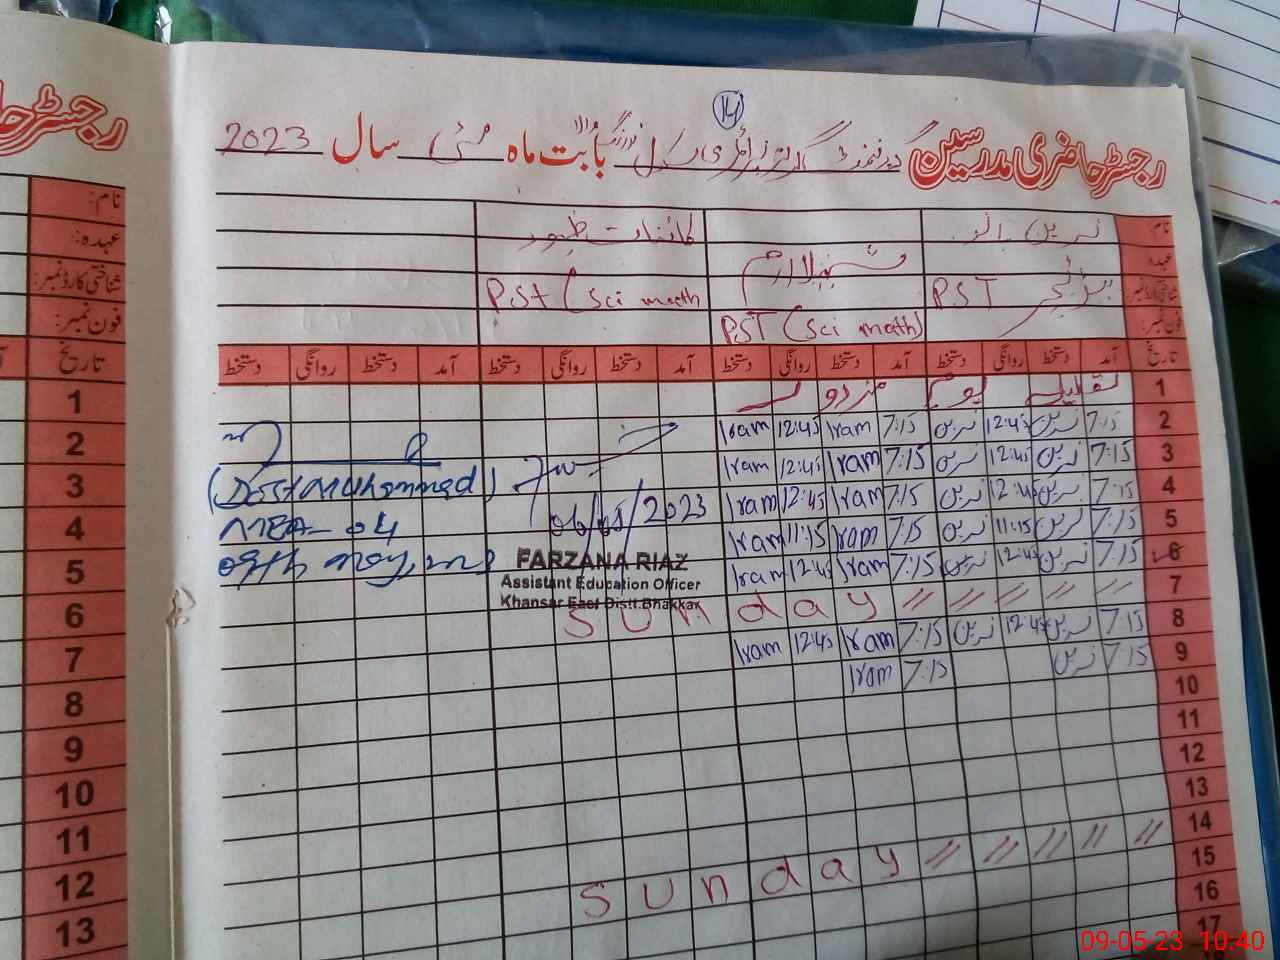 14
رجسٹر حاضری مدرسین گورنمنٹ گرلز پرائمری سکول بابت ماہ مئی سال 2023
نام نسرین بانو کائنات ظہور
عہدہ ٹیچر شہلا ارم
شناختی کارڈ نمبر PST PST (Sci math
فون نمبر PST (Sci math)
تاریخ آمد دستخط روانگی دستخط آمد دستخط روانگی دستخط آمد دستخط روانگی دستخط آمد دستخط روانگی دستخط
1 تعطیل یوم مزدور
2 7:15 نسرین 12:45 نسرین 7:15 Iram 12:45 Iram
3 7:15 نسرین 12:45 نسرین 7:15 Iram 12:45 Iram
4 7:15 نسرین 12:45 نسرین 7:15 Iram 12:45 Iram
5 7:15 نسرین 11:15 نسرین 7:15 Iram 11:15 Iram
6 7:15 نسرین 12:45 نسرین 7:15 Iram 12:45 Iram
7 Sunday // // // // //
8 7:15 نسرین 12:45 نسرین 7:15 Iram 12:45 Iram
9 7:15 نسرین 7:15 Iram
10
11
12
13
14 Sunday // // // // //
15
16
17
(Dost Muhammad)
MEA-04
09th May,
06/05/2023
FARZANA RIAZ
Assistant Education Officer
Khansar East Distt.Bhakkar
رجسٹر
نام:
عہدہ:
شناختی کارڈ نمبر:
فون نمبر:
تاریخ
1
2
3
4
5
6
7
8
9
10
11
12
13
09-05-23 10:40